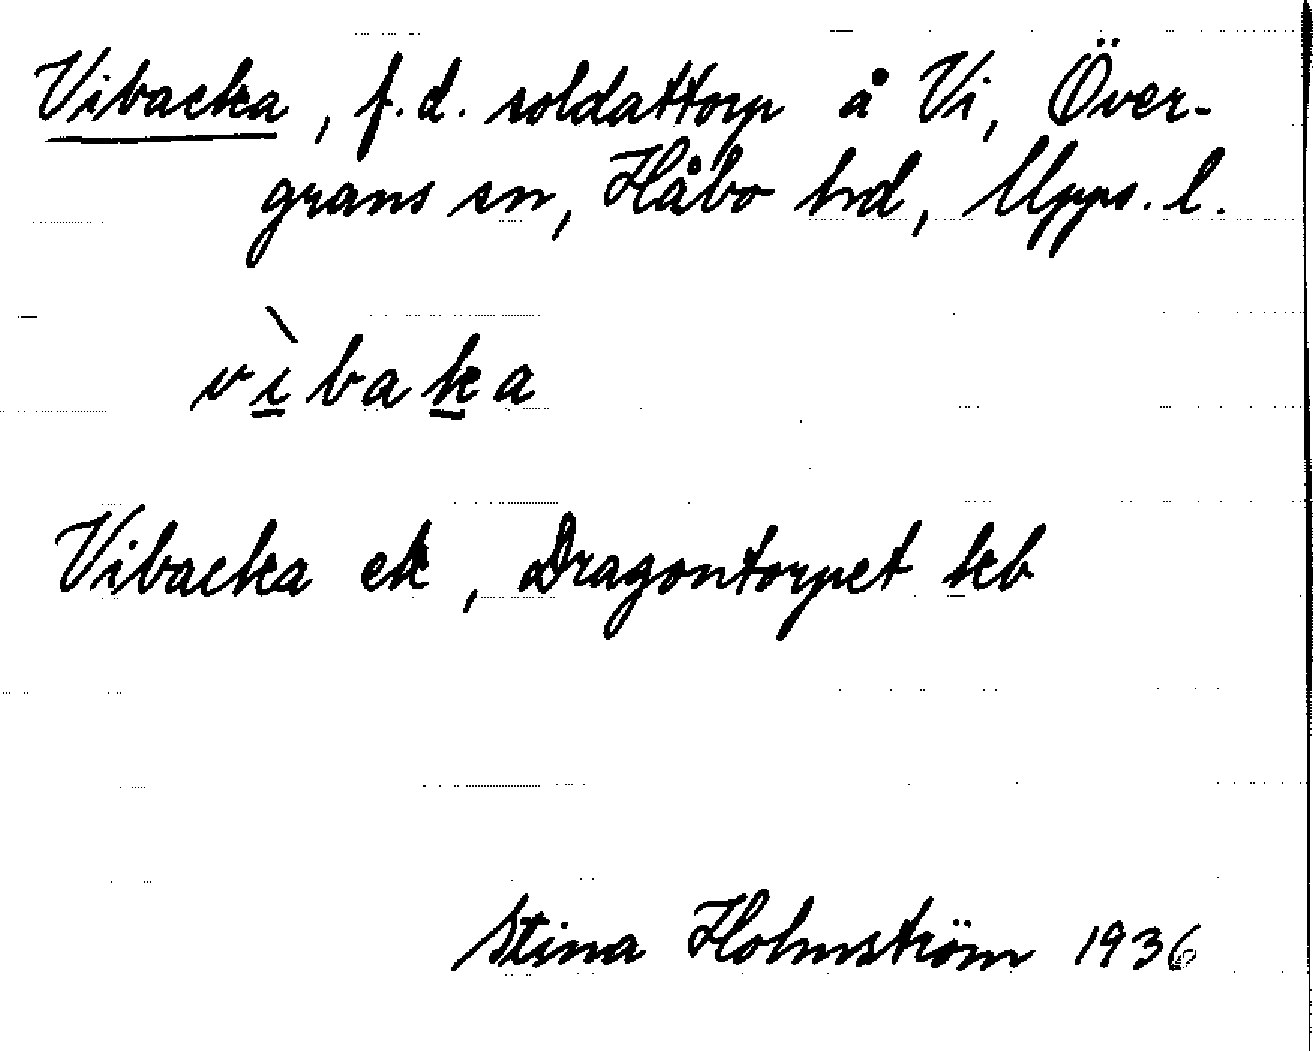 Vibacka, f.d. soldattorp å Vi, Över-
grans sn, Håbo hd, Upps. l.
vı̀baka
Vibacka ek, Dragontorpet kb
Stina Holmström 1936